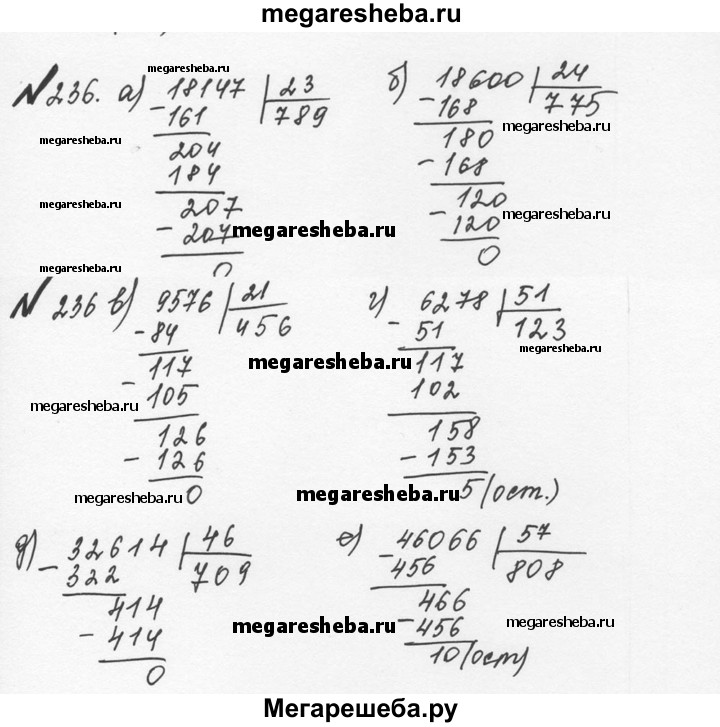 megaresheba.ru
№236. а) 18147 | 23 б) 18600 | 24
megaresheba.ru
- 161 789 - 168 775
megaresheba.ru
megaresheba.ru
204 180
184 - 168
megaresheba.ru
207 120
megaresheba.ru
megaresheba.ru
- 207 - 120
0 0
megaresheba.ru
№ 236 в) 9576 | 21 г) 6278 | 51
- 84 456 - 51 123
megaresheba.ru
117 117
megaresheba.ru
- 105 102
megaresheba.ru
126 158
- 126 - 153
0 5 (ост.)
megaresheba.ru
megaresheba.ru
д) 32614 | 46 е) 46066 | 57
- 322 709 - 456 808
414 466
- 414 - 456
megaresheba.ru
megaresheba.ru
0 10 (ост)
Мегарешеба.ру